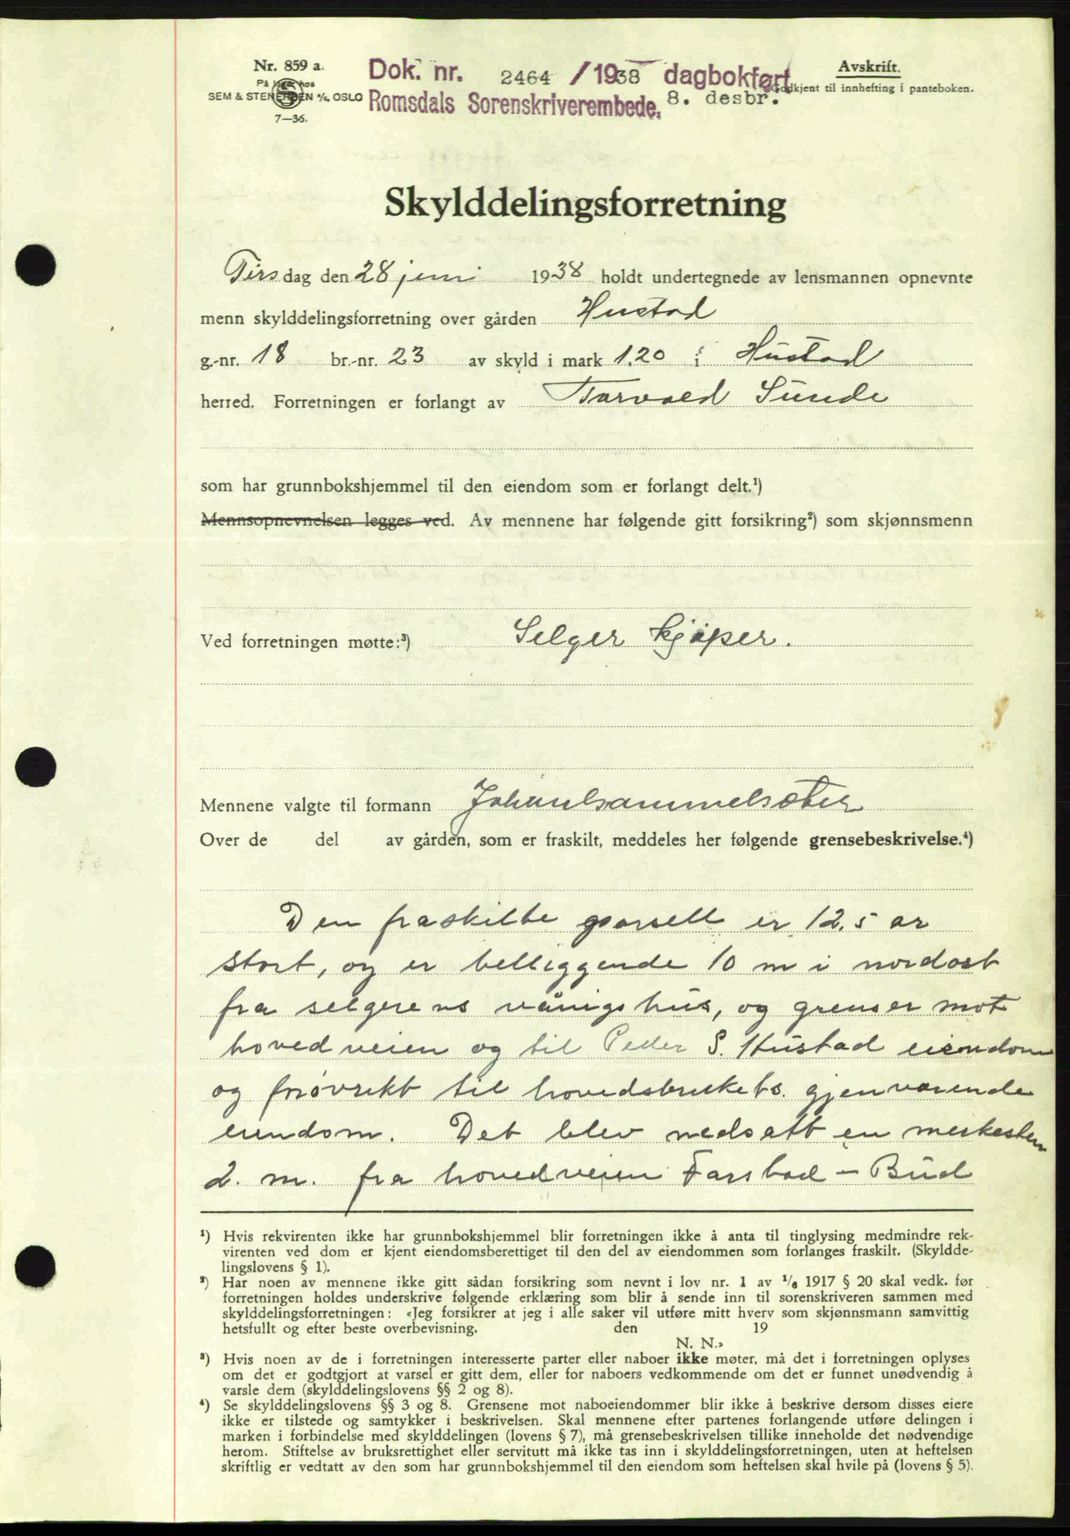 Nr. 859 a.
På lager hos
SEM & STENERSEN A/S, OSLO
7—36.
Dok. nr. 2464 /1938 dagbokført
8. desbr.
Romsdals Sorenskriverembede.
Avskrift.
Godkjent til innhefting i panteboken.
Skylddelingsforretning
Tirsdag den 28 juni 1938 holdt undertegnede av lensmannen opnevnte
menn skylddelingsforretning over gården Hustad
g.-nr. 18 br.-nr. 23 av skyld i mark 1,20 i Hustad
herred. Forretningen er forlangt av Torvald Sunde
som har grunnbokshjemmel til den eiendom som er forlangt delt.¹)
Mennsopnevnelsen legges ved. Av mennene har følgende gitt forsikring²) som skjønnsmenn
Ved forretningen møtte:³) Selger kjøper.
Mennene valgte til formann
Over de del av gården, som er fraskilt, meddeles her følgende grensebeskrivelse.⁴)
Den fraskilte parsell er 12,5 ar
stort, og er beliggende 10 m i nordost
fra selgerens våningshus, og grenser mot
hovedveien og til Peder S. Hustad eiendom
og forøvrikt til hovedsbrukets gjenværende
eiendom. Det blev nedsatt en merkesten
2. m. fra hovedveien Farstad – Bud
¹) Hvis rekvirenten ikke har grunnbokshjemmel blir forretningen ikke å anta til tinglysing medmindre rek-
virenten ved dom er kjent eiendomsberettiget til den del av eiendommen som forlanges fraskilt. (Skyldde-
lingslovens § 1).
²) Har noen av mennene ikke gitt sådan forsikring som nevnt i lov nr. 1 av 1/6 1917 § 20 skal vedk. før
forretningen holdes underskrive følgende erklæring som blir å sende inn til sorenskriveren sammen med
skylddelingsforretningen: «Jeg forsikrer at jeg i alle saker vil utføre mitt hverv som skjønnsmann samvittig
hetsfullt og efter beste overbevisning. den 19
N. N.»
³) Hvis noen av de i forretningen interesserte parter eller naboer ikke møter, må det i forretningen oplyses
om det er godtgjort at varsel er gitt dem, eller for naboers vedkommende om det er funnet unødvendig å
varsle dem (skylddelingslovens §§ 2 og 8).
⁴) Se skylddelingslovens §§ 3 og 8. Grensene mot naboeiendommer blir ikke å beskrive dersom disses eiere
ikke er tilstede og samtykker i beskrivelsen. Skal mennene efter partenes forlangende utføre delingen i
marken i forbindelse med skylddelingen (lovens § 7), må grensebeskrivelsen tillike inneholde det nødvendige
herom. Stiftelse av bruksrettighet eller servitutt må ikke tas inn i skylddelingsforretningen, uten at heftelsen
skriftlig er vedtatt av den som har grunnbokshjemmel til den eiendom som heftelsen skal hvile på (lovens § 5).